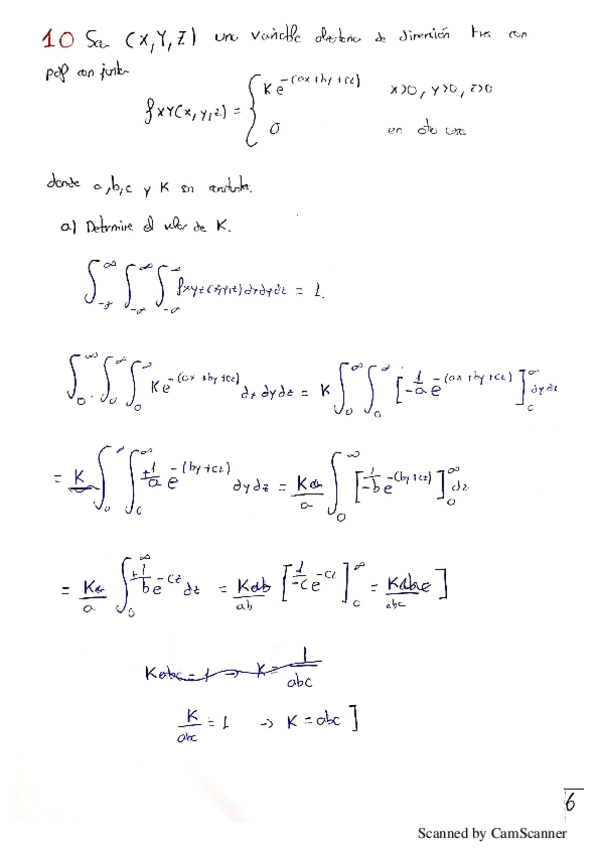 10 Sea (X,Y,Z) una variable aleatoria de dimensión tres con
pdf conjunta
fXY(x,y,z) = { K e^-(ax+by+cz) x>0, y>0, z>0
0 en otro caso
donde a,b,c y K son constantes.
a) Determine el valor de K.
∫_-∞^∞ ∫_-∞^∞ ∫_-∞^∞ fxyz(x,y,z) dx dy dz = 1.
∫_0^∞ ∫_0^∞ ∫_0^∞ K e^-(ax+by+cz) dx dy dz = K ∫_0^∞ ∫_0^∞ [-1/a e^-(ax+by+cz)]_0^∞ dy dz
= K ∫_0^∞ ∫_0^∞ +1/a e^-(by+cz) dy dz = K/a ∫_0^∞ [1/-b e^-(by+cz)]_0^∞ dz
= K/a ∫_0^∞ +1/b e^-cz dz = K/ab [1/-c e^-cz]_0^∞ = K/abc ]
Kabc = 1 → K = 1/abc
K/abc = 1 → K = abc ]
6
Scanned by CamScanner